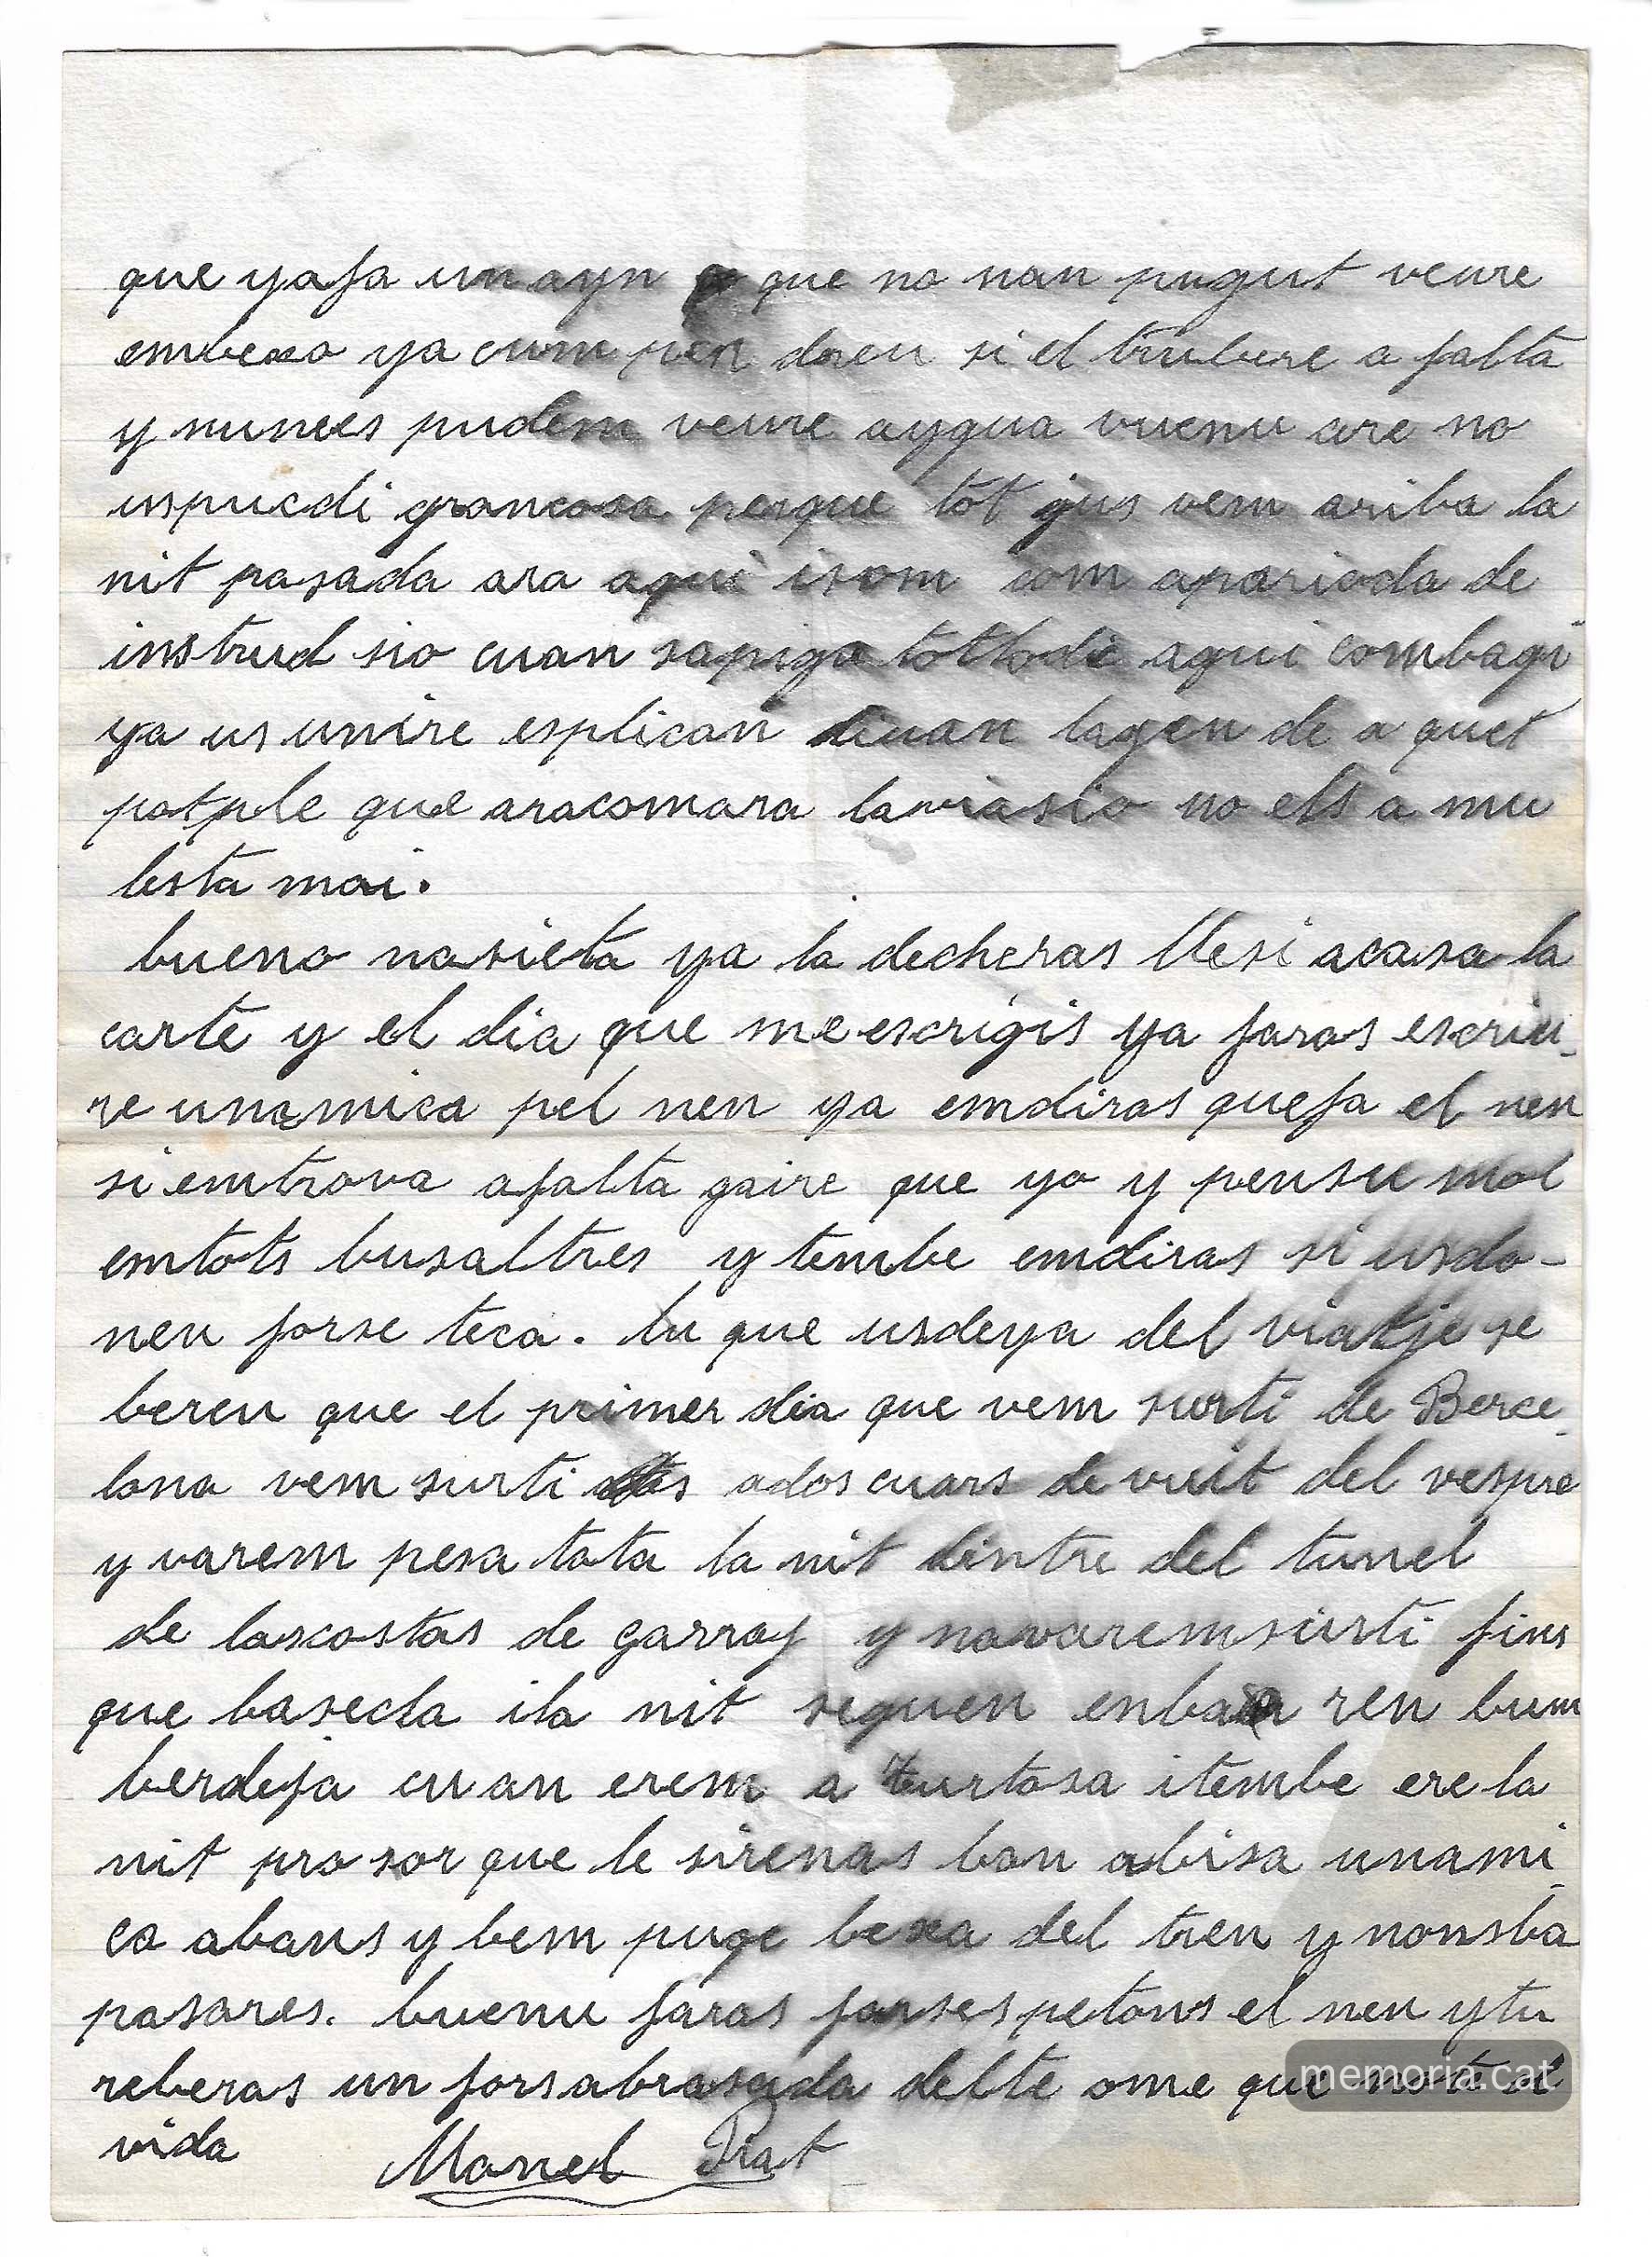 que yafa un ayn que no nan pugut veure
embexo ya cumpen dreu si el trubere a falta
y nunces pudem veure aygua buenu are no
uspucdi grancosa perque tot jus vem ariba la
nit pasada ara aqui isom com aparioda de
instrud sio cuan sapiga tottode aqui combagi
ya us unire esplican di uan lagen de a quet
potple que aracomara laviasio no els a mu
lesta mai.
bueno nasieta ya la decheras llesi acasa la
carte y el dia que me escrigis ya faras escriu-
re unamica pel nen ya emdiras quefa el nen
si emtrova afalta gaire que yo y pensu mol
emtots busaltres y tembe emdiras si usdo-
nen forse teca. lu que usdeya del viatje se
beren que el primer dia que vem surti de Berce-
lona vem surti ados cuars de vuit del vespre
y varem pesa tota la nit dintre del tunel
de lascostas de garraf y novaremsurti fins
que basecla ila nit seguen enba ren bum
berdeja cuan erem a turtosa itembe ere la
nit pro sor que le sirenas ban abisa unami-
ca abans y bem puge bexa del tren y nonsba
pasares. buenu faras forses petons el nen ytu
reberas un forsabrasada delte ome que not ol
vida
Manel Prat
memoria.cat